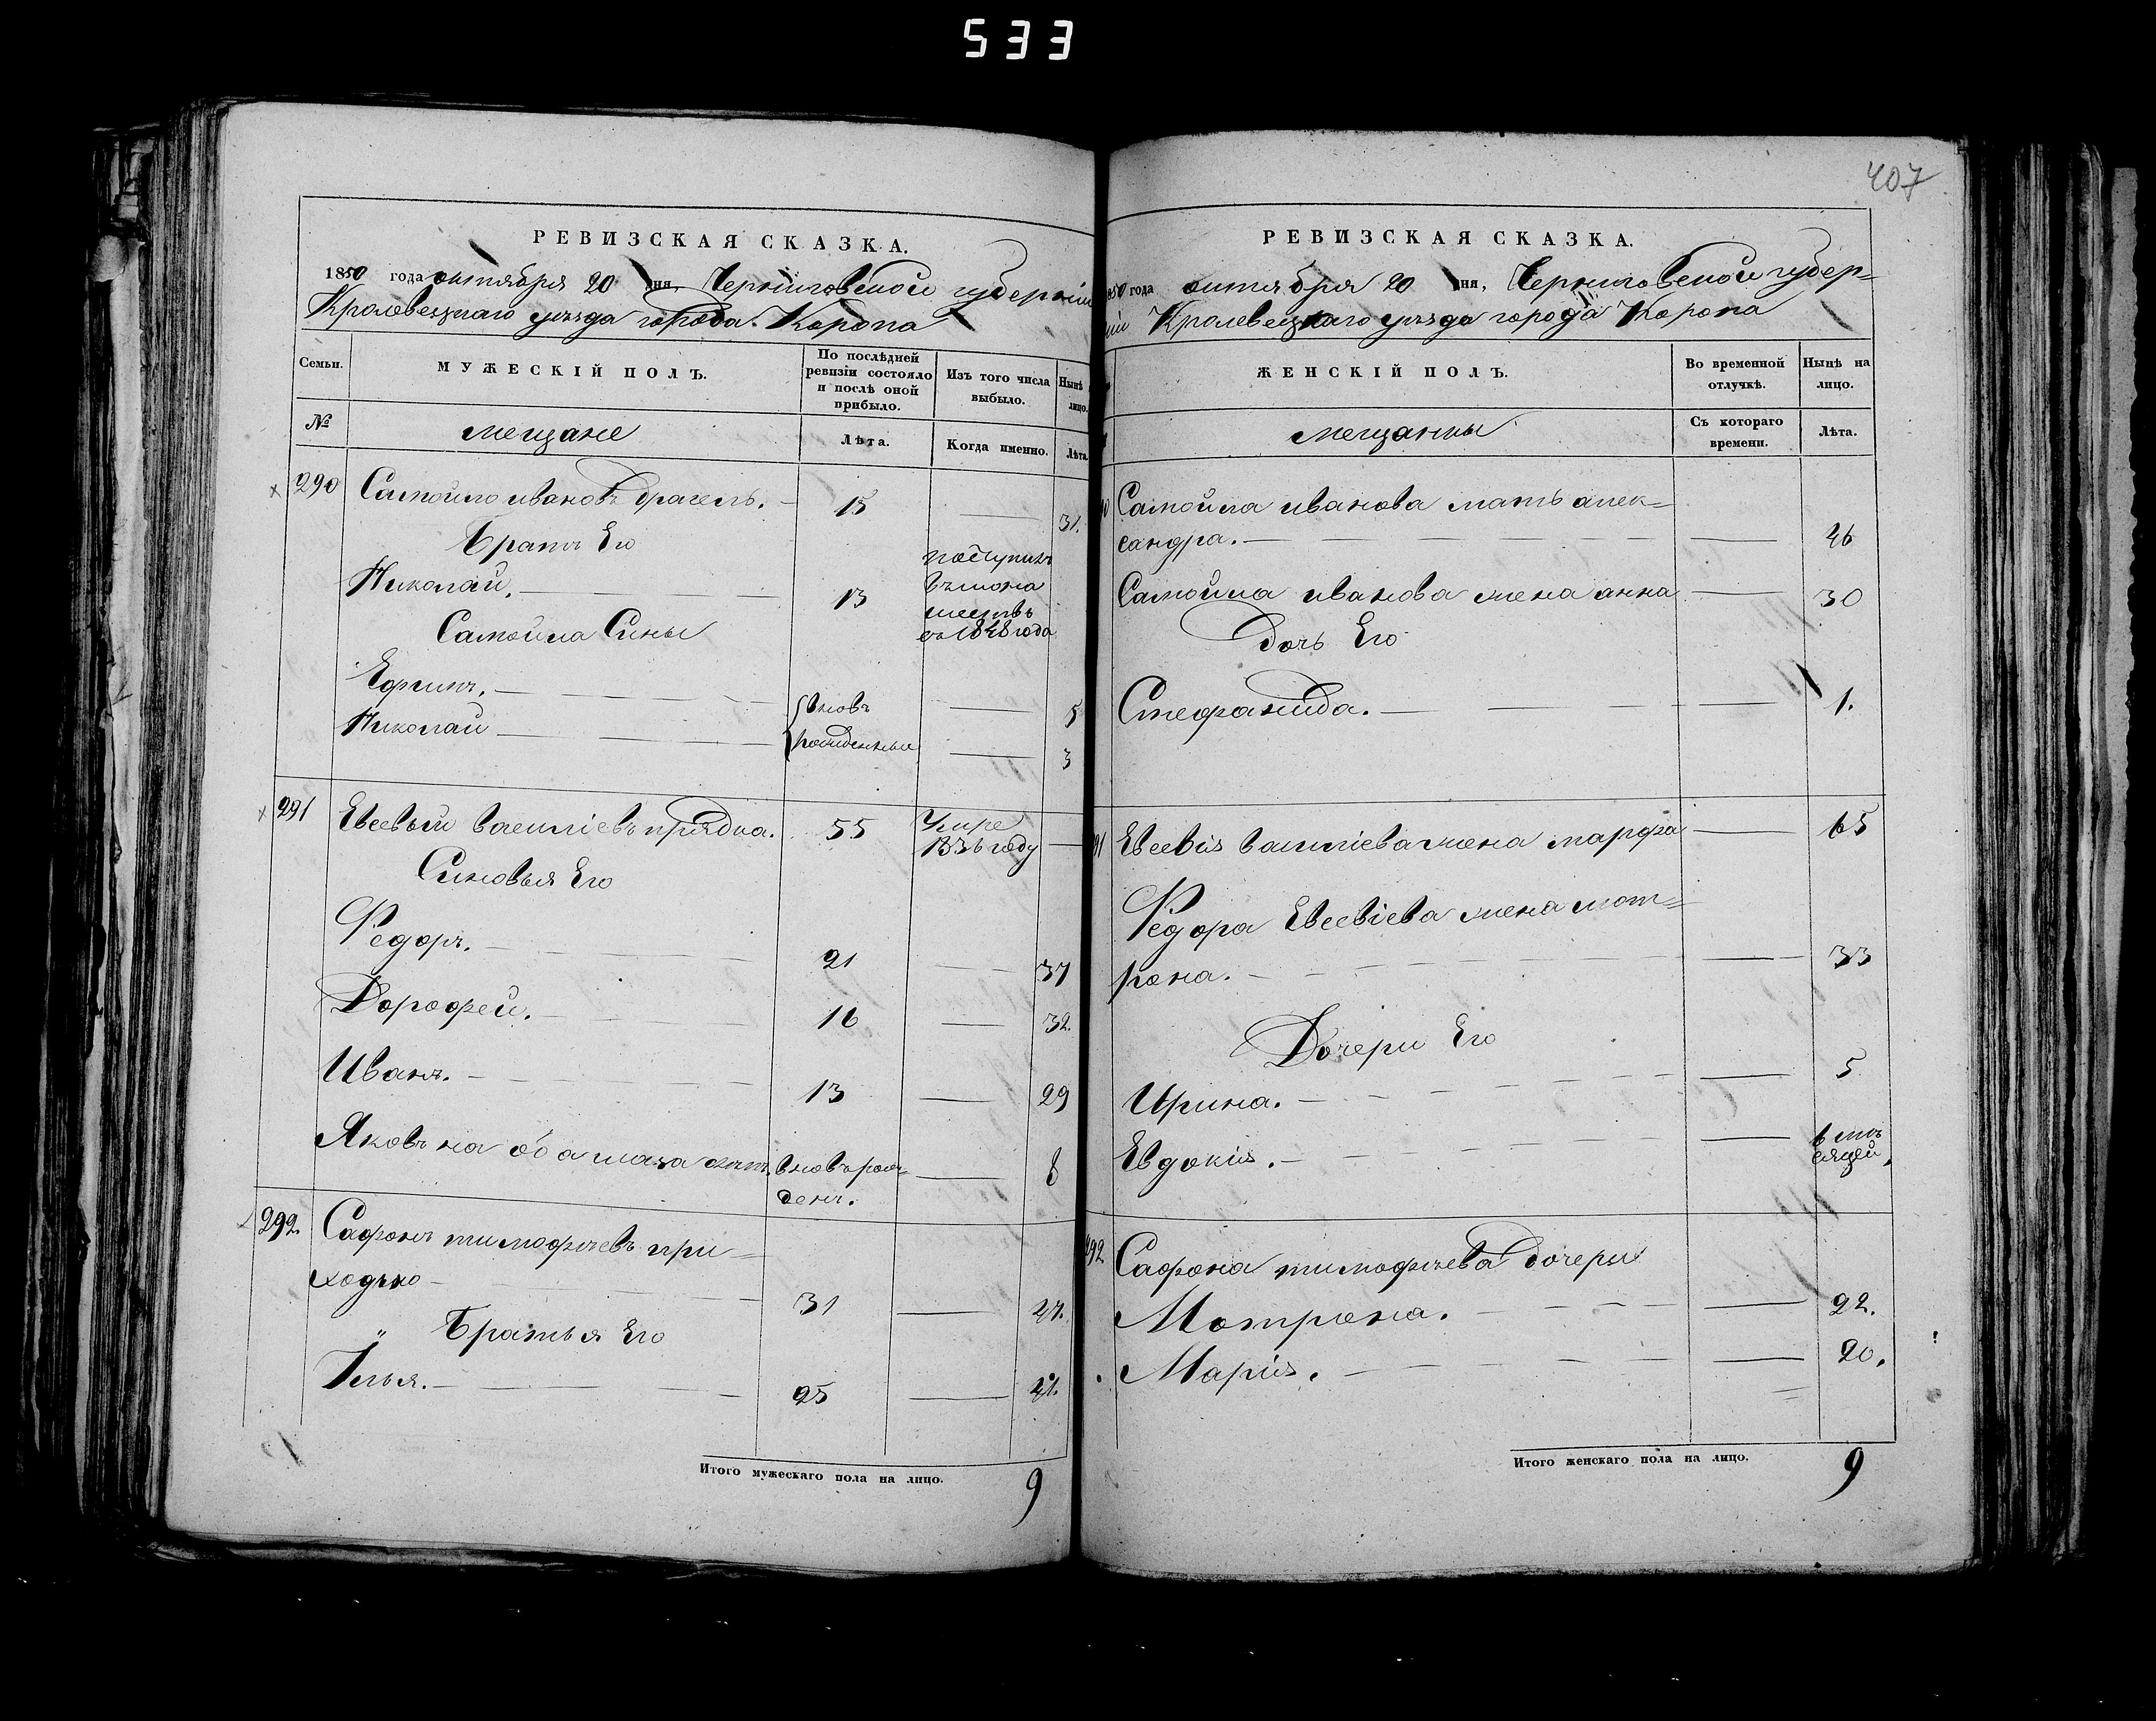 533
407
РЕВИЗСКАЯ СКАЗКА.
1850 года октября 20 дня, Черниговской губерніи
Кролевецкаго уѣзда города Коропа
Семьи.
МУЖЕСКІЙ ПОЛЪ.
По послѣдней ревизіи состояло и послѣ оной прибыло.
Изъ того числа выбыло.
Нынѣ лицо.
№
мещане
Лѣта.
Когда именно.
Лѣта.
290 Самойло ивановъ 15 31.
Братъ Его
Николай. 13 поступилъ
въ мона
шество
въ 1848 года
Самойла Сины
Ефимъ. вновь 5
Николай рожденные 3
291 Евсевый василіевъ прядка. 55 Умре
1836 году
Синовья Его
Федоръ. 21 37
Дорофей. 16 32.
Иванъ. 13 29
Яковъ на оба глаза вновь рож-
денъ. 8
292. Сафонъ тимофѣевъ при-
ходько 31 47.
" Братья Его
Илья. 25 41.
Итого мужескаго пола на лицо. 9
РЕВИЗСКАЯ СКАЗКА.
850 года октября 20 дня, Черниговской губер-
ніи Кролевецкаго уѣзда города Коропа
ЖЕНСКІЙ ПОЛЪ.
Во временной отлучкѣ.
Нынѣ на лицо.
мещанки
Съ котораго времени.
Лѣта.
Самойла иванова мать алек-
сандра. 46
Самойла иванова жена анна 30
дочь Его
Стефанида. 1.
91 Евсевія василіева жена марфа 65
Федора Евсевіева жена мот-
рона. 33
Дочери Его
Ирина. 5
Евдокія. 6 мѣ
сяцей,
292 Сафона тимофѣева дочери
Мотрона. 22.
Марія. 20.
Итого женскаго пола на лицо. 9